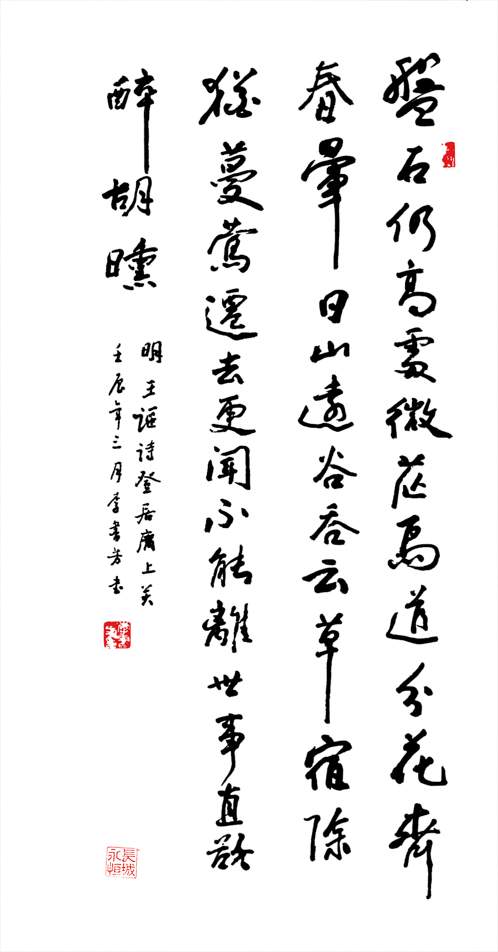 盤石仍高處微茫鳥道分花齊
春暈日山遠谷吞云草宿除
猶蔓鶯遷去更聞不能離世事直欲
醉胡曛
明王謳詩登居庸上关
壬辰年三月李書芳书
長城
永恒